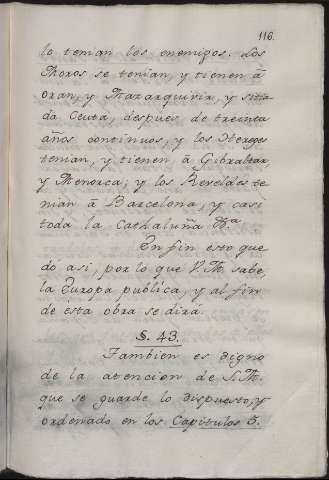 116.
lo tenian los enemigos. Los
Moros se tenian, y tienen â
Oran, y Mazarquivir, y sitia-
da Ceuta, despues de treinta
años continuos, y los Hereges
tenian, y tienen â Gibraltar,
y Menorca; y los Reveldes te
nian â Barcelona, y casi
toda la Cathaluña &.ª
En fin esto que
dó asi, por lo que V. M. sabe,
la Europa publica, y al fin
de esta obra se dirá.
§. 43.
Tambien es digno
de la atencion de V. M.
que se guarde lo dispuesto, y
ordenado en los Capitulos 5.